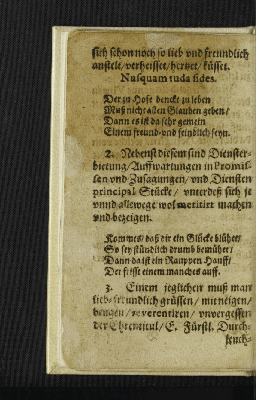 sich schon noch so lieb vnd freundlich
anstelt/ verheisset/ hertzet/ küsset.
Nusquam tuda fides.
Der zu Hofe dencke zu leben
Muß nicht allen Glauben geben/
Dann es ist da sehr gemein
Einem freund- vnd feindlich seyn.
2. Nebenst diesem sind Dienster-
bietung/ Auffwartungen in Promis-
sen vnd Zusagungen/ vnd Diensten
principal Stücke/ vnterdeß sich je
vnnd allewege wol meritirt machen
vnd bezeigen.
Kommes/ daß dir ein Glücke blühet/
So sey stündlich drumb bemühet/
Dann da ist ein Rauppen Hauff/
Der frisset einem manches auff.
3. Einem jeglichen muß man
lieb- freundlich grüssen/ mit neigen/
beugen/ reverentiren/ vnvergessen
der Ehrentitul/ E. Fürstl. Durch-
leuch-